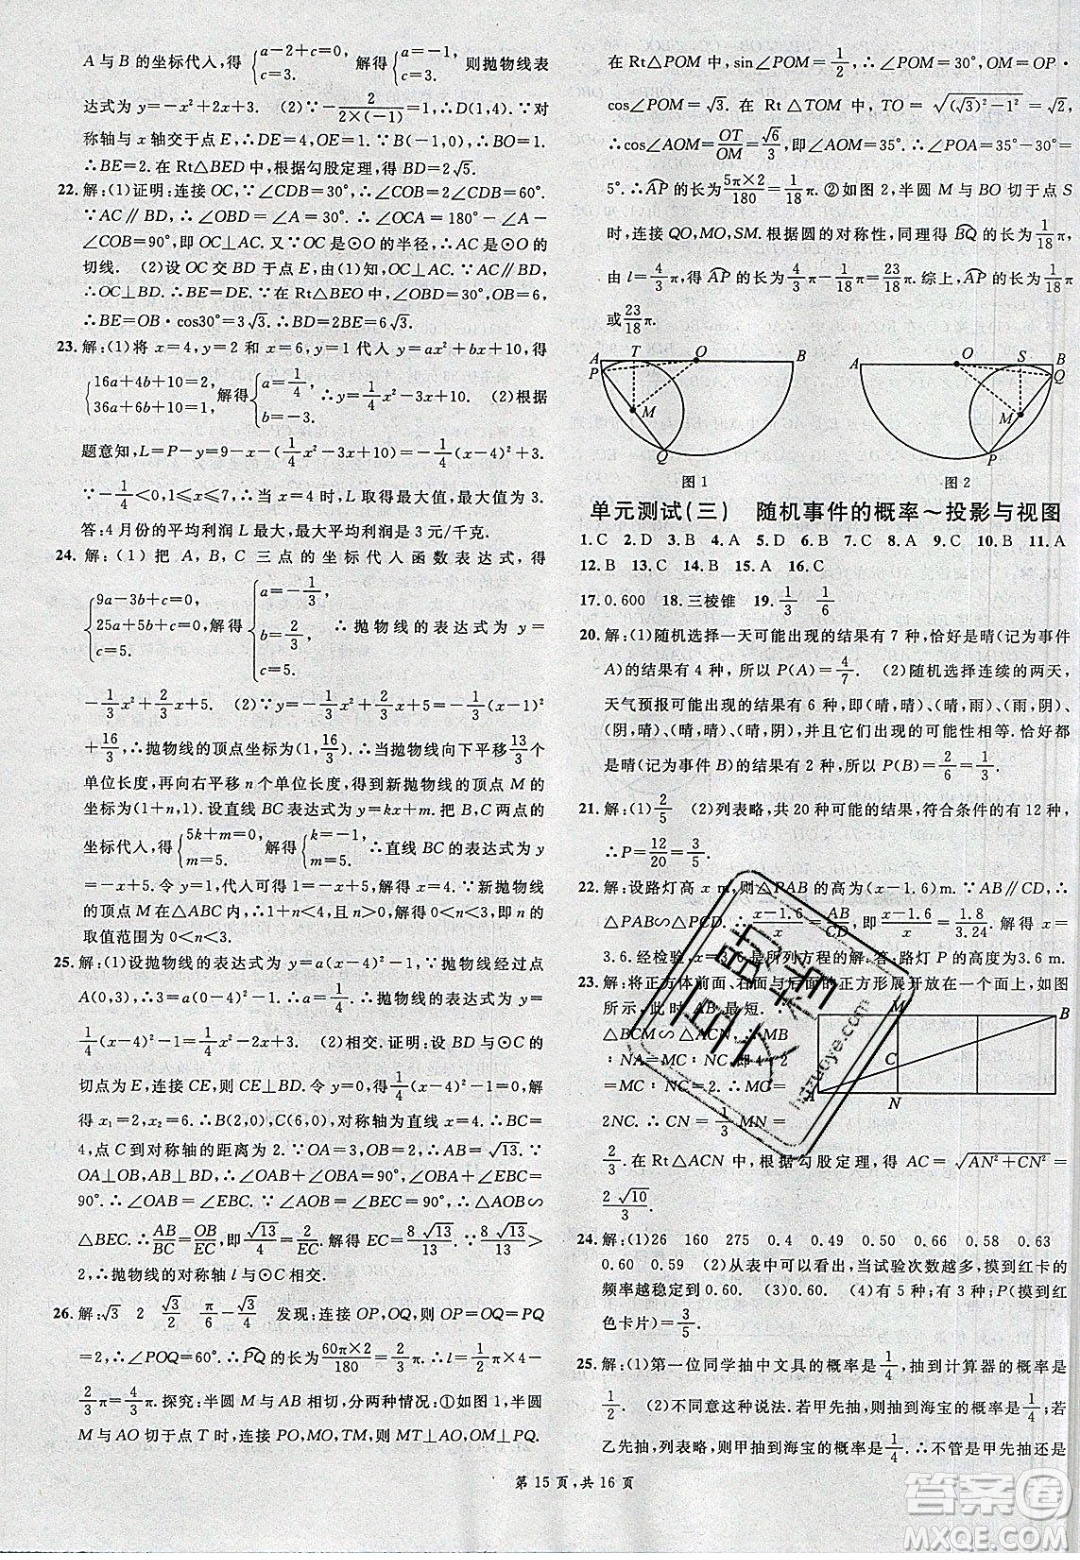 A与B的坐标代入,得{a-2+c=0, c=3. 解得{a=-1, c=3. 则抛物线表
达式为y=-x²+2x+3. (2)∵-2/(2×(-1))=1,∴D(1,4).∵对
称轴与x轴交于点E,∴DE=4,OE=1.∵B(-1,0),∴BO=1.
∴BE=2.在Rt△BED中,根据勾股定理,得BD=2√5.
22.解:(1)证明:连接OC,∵∠CDB=30°,∴∠COB=2∠CDB=60°.
∵AC∥BD,∴∠OBD=∠A=30°.∴∠OCA=180°-∠A-
∠COB=90°,即OC⊥AC.又∵OC是⊙O的半径,∴AC是⊙O的
切线. (2)设OC交BD于点E,由(1),得OC⊥AC.∵AC∥BD,
∴OC⊥BD.∴BD=2BE.∵在Rt△BEO中,∠OBD=30°,OB=6,
∴BE=OB·cos30°=3√3.∴BD=2BE=6√3.
23.解:(1)将x=4,y=2和x=6,y=1代入y=ax²+bx+10,得
{16a+4b+10=2, 36a+6b+10=1, 解得{a=1/4, b=-3. ∴y=1/4x²-3x+10. (2)根据
题意知,L=P-y=9-x-(1/4x²-3x+10)=-1/4(x-4)²+3.
∵-1/4<0,1≤x≤7,∴当x=4时,L取得最大值,最大值为3.
答:4月份的平均利润L最大,最大利润是3元/千克.
24.解:(1)把A,B,C三点的坐标代入函数表达式,得
{9a-3b+c=0, 25a+5b+c=0, c=5. 解得{a=-1/3, b=2/3, c=5. ∴抛物线的表达式为y=
-1/3x²+2/3x+5. (2)∵y=-1/3x²+2/3x+5=-1/3(x-1)²
+16/3,∴抛物线的顶点坐标为(1,16/3).∴当抛物线向下平移13/3个
单位长度,再向右平移n个单位长度,得到新抛物线的顶点M的
坐标为(1+n,1).设直线BC表达式为y=kx+m.把B,C两点的
坐标代入,得{5k+m=0, m=5. 解得{k=-1, m=5. ∴直线BC的表达式为y
=-x+5.令y=1,代入可得1=-x+5,解得x=4.∵新抛物线
的顶点M在△ABC内,∴1<n+1<4,且n>0,解得0<n<3.即n的
取值范围为0<n<3.
25.解:(1)设抛物线的表达式为y=a(x-4)²-1,∵抛物线经过点
A(0,3),∴3=a(0-4)²-1,a=1/4.∴抛物线的表达式为y=
1/4(x-4)²-1=1/4x²-2x+3. (2)相交.证明:设BD与⊙C的
切点为E,连接CE,则CE⊥BD.令y=0,得1/4(x-4)²-1=0,解
得x₁=2,x₂=6.∴B(2,0),C(6,0),对称轴为直线x=4.∴BC=
4,点C到对称轴的距离为2.∵OA=3,OB=2,∴AB=√13.
∵AB⊥BD,∴∠OAB+∠OBA=90°,∠OBA+∠EBC=
90°.∴∠OAB=∠EBC.∵∠AOB=∠BEC=90°,∴△AOB∽
△BEC.∴AB/BC=OB/EC,即√13/4=2/EC.解得EC=8√13/13.∵8√13/13>
2,∴抛物线的对称轴l与⊙C相交.
26.解:√3 2 √3/2 π/6-√3/4 发现:连接OP,OQ,则OP=OQ=PQ
=2,∴∠POQ=60°.∴PQ的长为60π×2/180=2/3π.∴l=1/2π·4-
2/3π=4/3π.探究:半圆M与AB相切,分两种情况:①如图1,半圆
M与AO切于点T时,连接PO,MO,TM,则MT⊥AO,OM⊥PQ.
在Rt△POM中,sin∠POM=1/2,∴∠POM=30°,OM=OP·
cos∠POM=√3.在Rt△TOM中,TO=√((√3)²-1²)=√2,
∴cos∠AOM=OT/OM=√6/3,∴∠AOM=35°.∴∠POA=
5°.∴AP的长为5π×2/180=1/18π. ②如图2,半圆M与BO切于点S
时,连接QO,MO,SM.根据圆的对称性,同理得BQ的长为1/18π,
由l=4/3π,得AP的长为4/3π-1/18π=23/18π.综上,AP的长为1/18π
或23/18π.
A T O B P M Q
A O S B Q M P
图1 图2
单元测试(三) 随机事件的概率~投影与视图
1.C 2.D 3.B 4.A 5.D 6.B 7.C 8.A 9.C 10.B 11.A
12.B 13.C 14.B 15.A 16.C
17.0.600 18.三棱锥 19.1/3 1/6
20.解:(1)随机选择一天可能出现的结果有7种,恰好是晴(记为事件
A)的结果有4种,所以P(A)=4/7. (2)随机选择连续的两天,
天气预报可能出现的结果有6种,即(晴,晴)、(晴,雨)、(雨,阴)、
(阴,晴)、(晴,晴)、(晴,阴),并且它们出现的可能性相等.恰好都
是晴(记为事件B)的结果有2种,所以P(B)=2/6=1/3.
21.解:(1)2/5 (2)列表略,共20种可能的结果,符合条件的有12种,
∴P=12/20=3/5.
22.解:设路灯高x m,则△PAB的高为(x-1.6)m.∵AB∥CD,
∴△PAB∽△PCD.∴(x-1.6)/x=AB/CD,即(x-1.6)/x=1.8/3.24.解得x=
3.6.经检验,x=3.6是所列方程的解.答:路灯P的高度为3.6 m.
23.解:将正方体前面、右面与后面的正方形展开放在一个面上,如图
所示,此时AB最短.∵
△BCM∽△ACN,∴MB
∶NA=MC∶NC,即4∶2
=MC∶NC=2.∴MC=
2NC.∴CN=1/3MN=
2/3.在Rt△ACN中,根据勾股定理,得AC=√(AN²+CN²)=
2√10/3.
M B C A N
24.解:(1)26 160 275 0.4 0.52 0.64 0.58 0.63
0.60 0.59 (2)从表中可以看出,当试验次数越多,摸到红卡的
频率越稳定到0.60. (3)0.60. (4)有5种;有3种,P(摸到红
色卡片)=3/5.
25.解:(1)第一位同学抽中文具的概率是1/4,抽到计算器的概率是
1/2. (2)不同意这种说法.若甲先抽,则抽到海宝的概率是1/4;若
乙先抽,列表略,则甲抽到海宝的概率=1/4.∴不管是甲先抽还是
第15页,共16页
答案圈
MXQE.COM